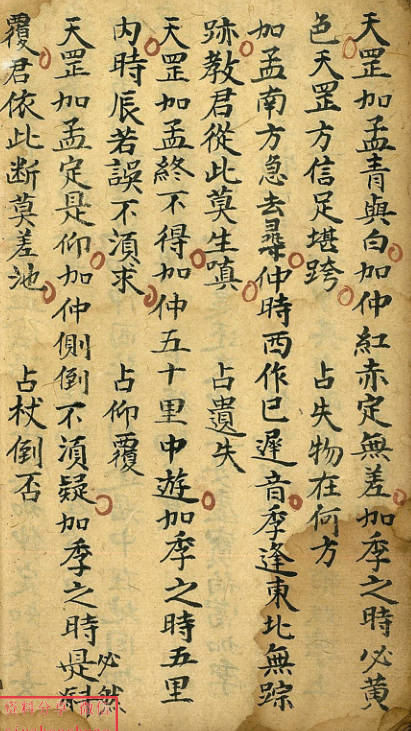 天罡加孟青與白加仲紅赤定無差加季之時必黄
色天罡方信足堪跨　占失物在何方
加孟南方急去尋仲時西作已遲音季逢東北無踪
跡教君從此莫生嗔　占遺失
天罡加孟終不得加仲五十里中遊加季之時五里
内時辰若誤不湏求　占仰覆
天罡加孟定是仰加仲側倒不湏疑加季之時是必然
覆君依此断莫差池　占杖倒否